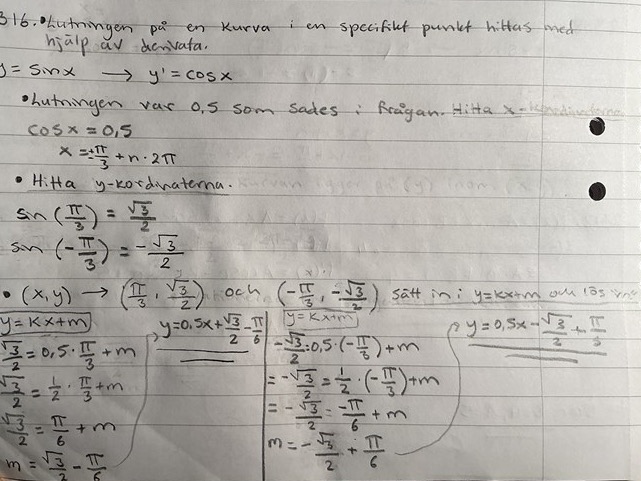 316. • Lutningen på en kurva i en specifikt punkt hittas med
hjälp av derivata.
y = sinx → y' = cosx
• Lutningen var 0,5 som sades i frågan. Hitta x-kordinaterna
cosx = 0,5
x = ±π/3 + n · 2π
• Hitta y-kordinaterna.
sin (π/3) = √3/2
sin (-π/3) = -√3/2
• (x,y) → (π/3, √3/2) och (-π/3, -√3/2) sätt in i y=kx+m och lös
y=kx+m
√3/2 = 0,5 · π/3 + m
√3/2 = 1/2 · π/3 + m
√3/2 = π/6 + m
m = √3/2 - π/6
y=0,5x+√3/2-π/6
y=kx+m
-√3/2=0,5·(-π/3)+m
=-√3/2=1/2·(-π/3)+m
=-√3/2=-π/6+m
m=-√3/2+π/6
y=0,5x-√3/2+π/3